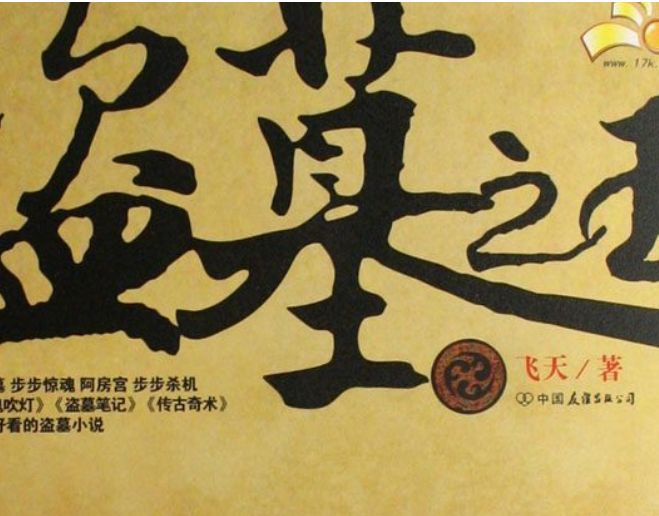 www.17k.
盗墓之王
飞天/著
中国友谊出版公司
墓 步步惊魂 阿房宫 步步杀机
吹灯》《盗墓笔记》《传古奇术》
好看的盗墓小说